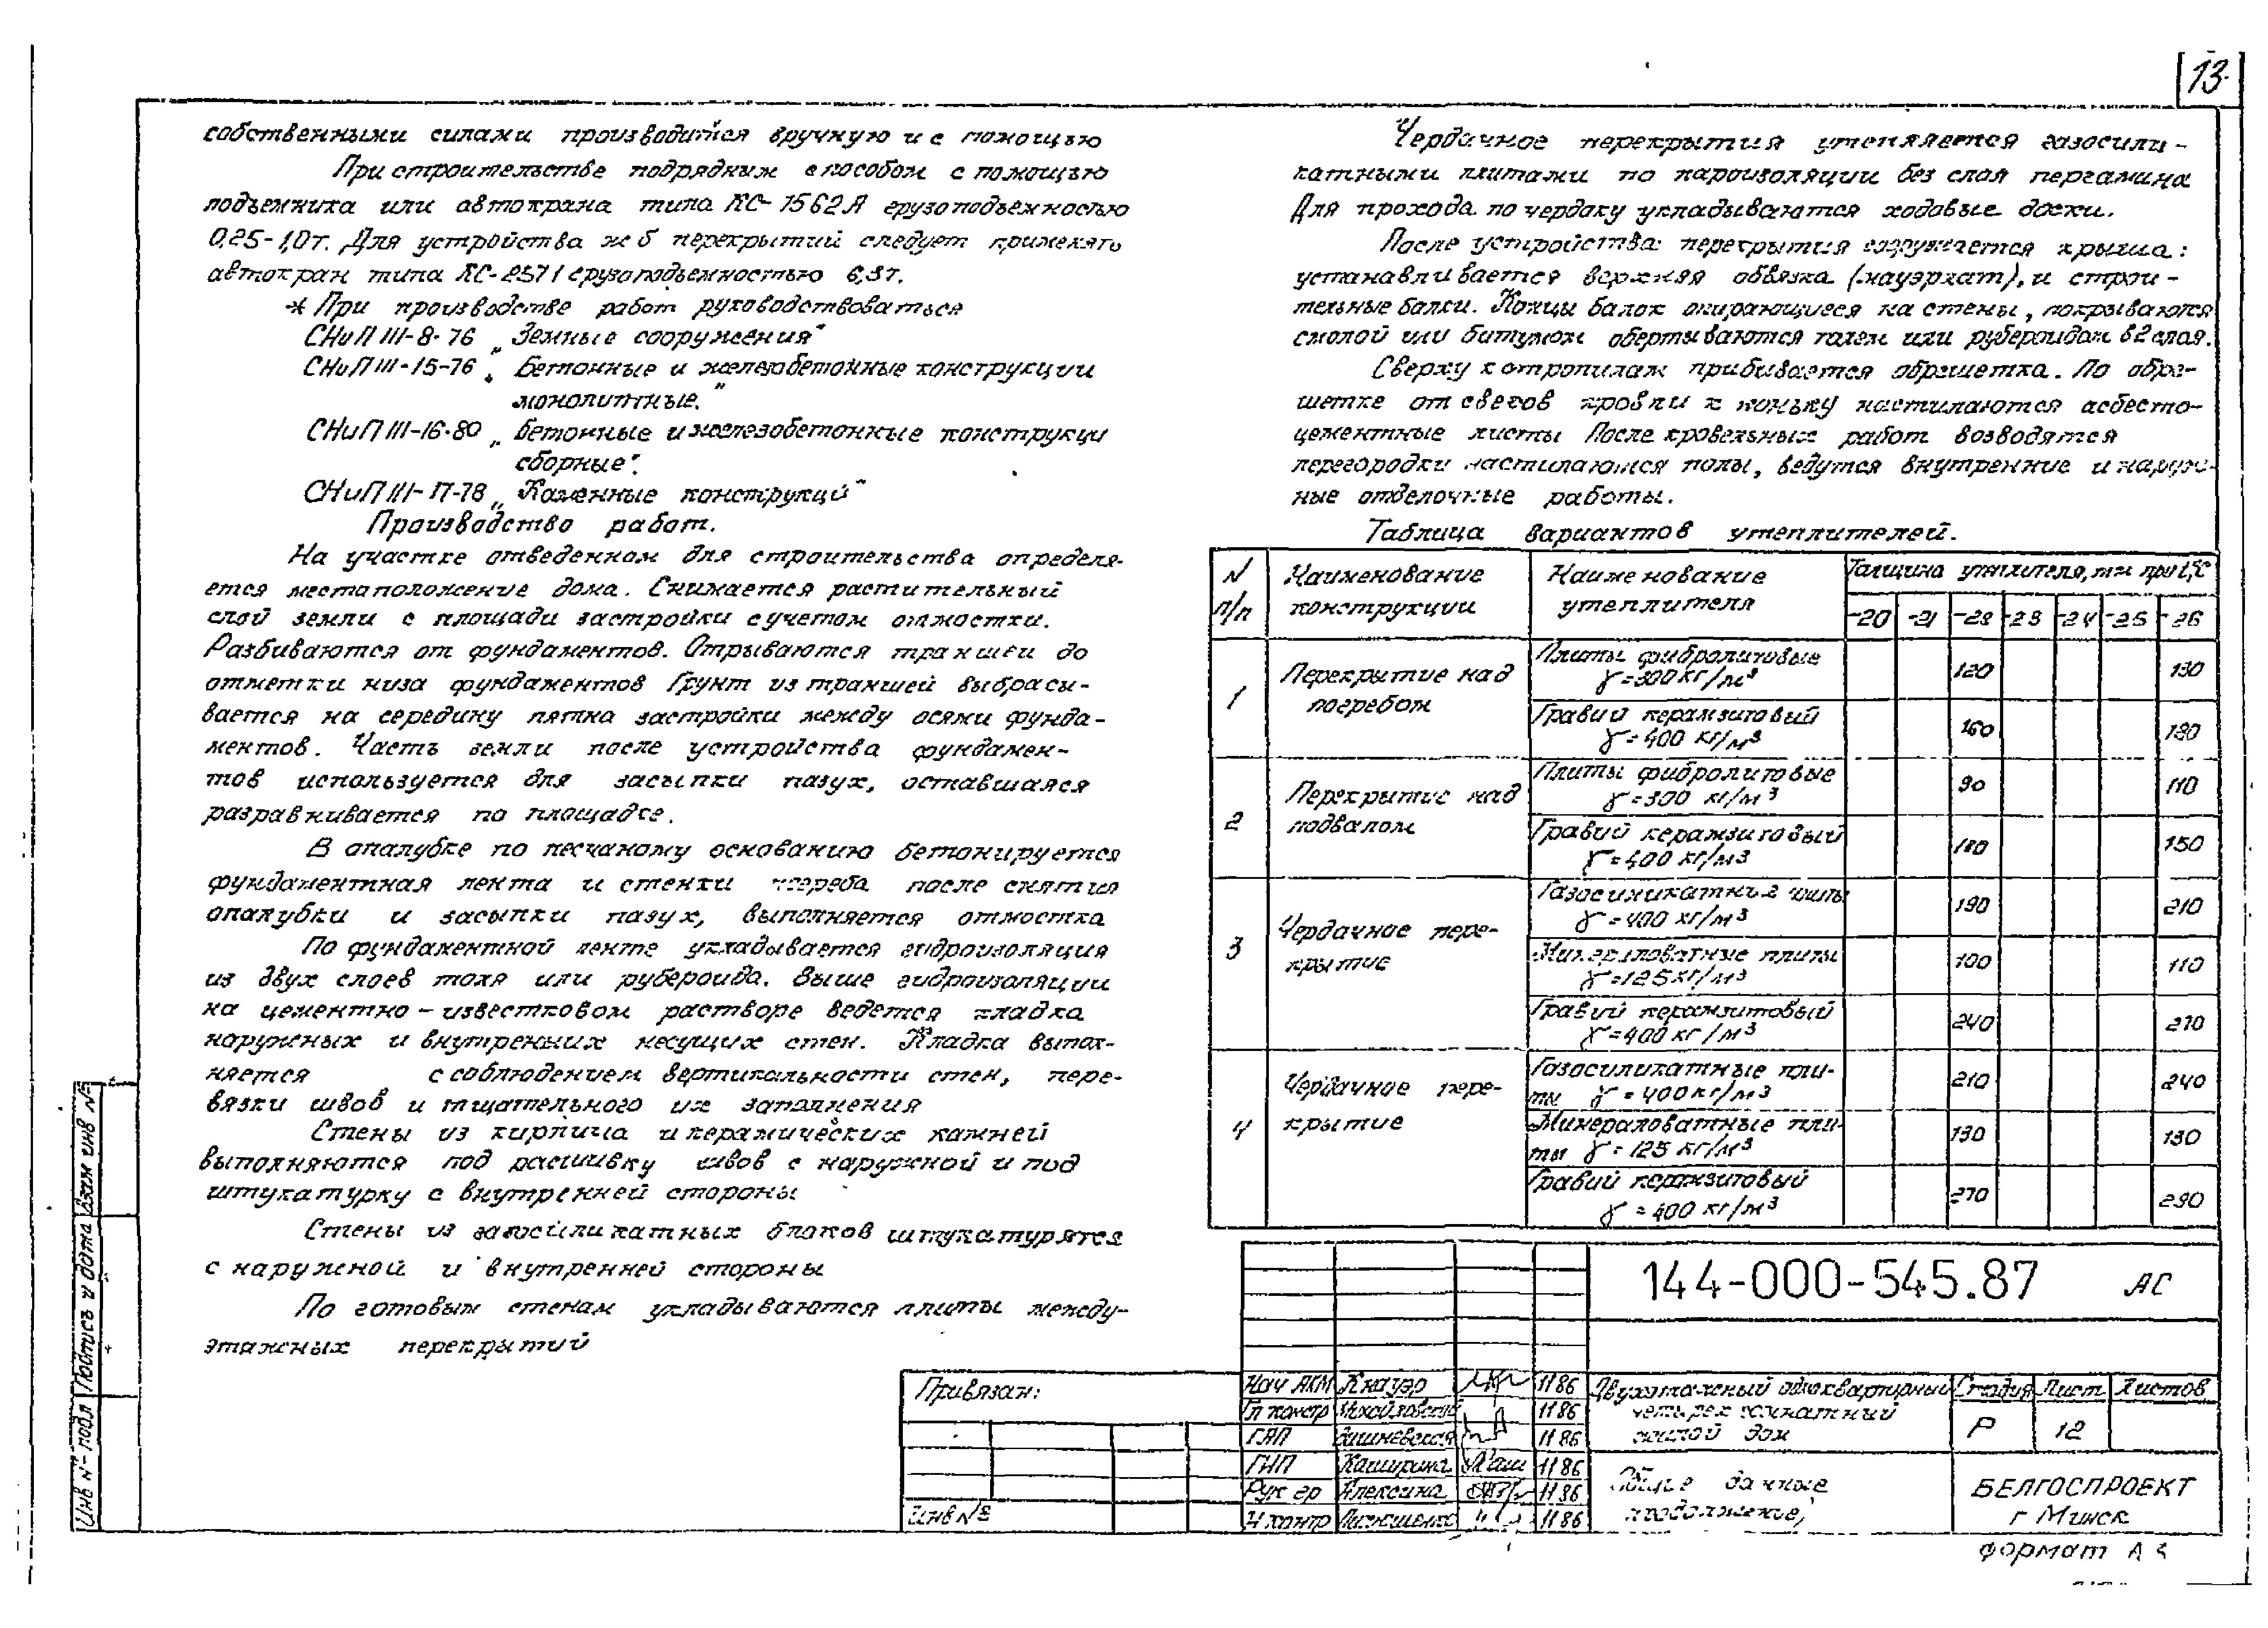 13
собственными силами производится вручную и с помощью
При строительстве подрядным способом с помощью
подъемника или автокрана типа КС-1562А грузоподъемностью
0,25-1,0т. Для устройства ж б перекрытий следует применять
автокран типа КС-2571 грузоподъемностью 6,3т.
* При производстве работ руководствоваться
СНиП III-8-76 „Земные сооружения"
СНиП III-15-76 „Бетонные и железобетонные конструкции
монолитные."
СНиП III-16-80 „Бетонные и железобетонные конструкци
сборные".
СНиП III-17-78 „Каменные конструкций"
Производство работ.
На участке отведенном для строительства определя-
ется местоположение дома. Снимается растительный
слой земли с площади застройки с учетом отмостки.
Разбиваются от фундаментов. Отрываются траншеи до
отметки низа фундаментов Грунт из траншей выбрасы-
вается на середину пятна застройки между осями фунда-
ментов. Часть земли после устройства фундамен-
тов используется для засыпки пазух, оставшаяся
разравнивается по площадке.
В опалубке по песчаному основанию бетонируется
фундаментная лента и стенки погреба после снятия
опалубки и засыпки пазух, выполняется отмостка
По фундаментной ленте укладывается гидроизоляция
из двух слоев толя или рубероида. Выше гидроизоляции
на цементно-известковом растворе ведется кладка
наружных и внутренних несущих стен. Кладка выпол-
няется с соблюдением вертикальности стен, пере-
вязки швов и тщательного их заполнения
Стены из кирпича и керамических камней
выполняются под расшивку швов с наружной и под
штукатурку с внутренней стороны
Стены из газосиликатных блоков штукатурятся
с наружной и внутренней стороны
По готовым стенам укладываются плиты между-
этажных перекрытий
Чердачное перекрытия утепляется газосили-
катными плитами по пароизоляции без слоя пергамина
Для прохода по чердаку укладываются ходовые доски.
После устройства перекрытия сооружается крыша:
устанавливается верхняя обвязка (мауэрлат), и строи-
тельные балки. Концы балок опирающиеся на стены, покрываются
смолой или битумом обертываются толем или рубероидом в 2 слоя.
Сверху к стропилам прибивается обрешетка. По обре-
шетке от свесов кровли к коньку настилаются асбесто-
цементные листы После кровельных работ возводятся
перегородки настилаются полы, ведутся внутренние и наруж-
ные отделочные работы.
Таблица вариантов утеплителей.
N п/п Наименование конструкции Наименование утеплителя Толщина утеплителя, мм при t,°C
-20 -21 -22 -23 -24 -25 -26
1 Перекрытие над погребом Плиты фибролитовые γ=300 кг/м³ 120 130
Гравий керамзитовый γ=400 кг/м³ 160 180
2 Перекрытие над подвалом Плиты фибролитовые γ=300 кг/м³ 90 110
Гравий керамзитовый γ=400 кг/м³ 150
3 Чердачное пере-крытие Газосиликатные плиты γ=400 кг/м³ 190 210
Минераловатные плиты γ=125кг/м³ 100 110
Гравий керамзитовый γ=400 кг/м³ 240 270
4 Чердачное пере-крытие Газосиликатные пли-ты γ=400кг/м³ 210 240
Минераловатные пли-ты γ=125 кг/м³ 130 130
Гравий керамзитовый γ=400 кг/м³ 270 290
144-000-545.87 АС
Привязан:
Инв №
Нач АКМ Кнауэр 11 86
Гл констр 11 86
ГАП Вишневская 11 86
ГИП Каширина 11 86
Рук гр Алексина 11 86
Н контр 11 86
Двухэтажный одноквартирный
четырехкомнатный
жилой дом
Стадия Лист Листов
Р 12
Общие данные
продолжение
БЕЛГОСПРОЕКТ
г Минск
формат А3
Инв № подл Подпись и дата Взам инв №